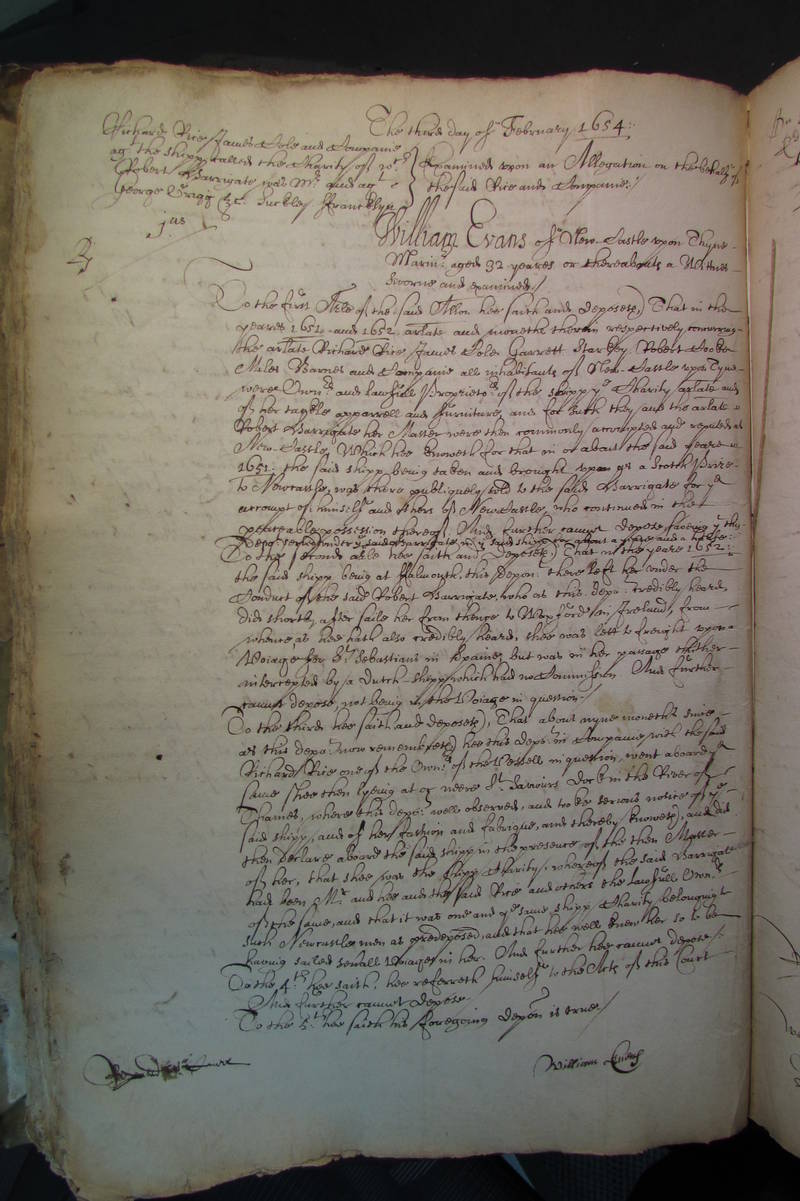 The third day of February 1654:
Richard Rice, James Cole and Companie
agt the shipp called the Charity of wch
Robert Barrigate was Mr and agt
George Grigg &c. Suckley Francklyn
Examined upon an Allegation on the behalfe of
the said Rice and Companie./
jus
William Evans of New-Castle upon Thyne
Marinr aged 32 yeares or thereabouts a Witnes
sworne and examined./
To the first Arle of the said Allon hee saith and deposeth, That in the
yeares 1651. and 1652 arlate and moneths therein respectively concurring
the arlate Richard Rice, James Cole, Garrett Starkey, Robert Cocke
Miles Barnes and Companie all inhabitants of New-Castle upon Tyne
were Ownrs and lawfull Proprietors of the shipp ye Charity arlate and
of her tackle apparrell and furniture, and for such they and the arlate
Robert Barrigate her Master were then commonly accompted and reputed at
New-Castle, Which hee knoweth for that in or about the said yeare
1651: the said shipp being taken and brought upon as a Scotch Prize
to Newcastle, was there publiquely sold to the said Barrigate for ye
accompt of himselfe and others of NewCastle, who continued in the
peaceable possession thereof, And further cannot depose saving yt this
depot served under ye said Barrigate in ye said shipp for about a yeare and a halfe:
To the second arle hee saith and deposeth, That in the yeare 1652:
the said shipp being at Falmouth, this deponr there left her under the
Conduct of the said Robert Barrigate, who as this depor credibly heard,
did shortly after saile her from thence to Wexford in Ireland, from
whence, as hee hath also credibly heard, shee was lett to freight upon a
Voiage for St Sebastians in Spaine, but was in her passage thither
intercepted by a Dutch shipp which had no Commission And further
cannot depose, not being in the Voiage in question./
To the third hee saith and deposeth, That about nyne moneths since
as this depot now remembreth, hee this depot in Companie with the said
Richard Rice one of the Ownrs of the Vessell in question, went aboard ye
same (shee then lyeing at or neere St Saviours Dock in the River of
Thames, where this depot well observed, and tooke serious notice of ye
said shipp, and of her fashion and fabrique, and thereby knoweth, and did
then declare aboard the said shipp in the presence of the then Master
of her, that shee was the shipp Charity, whereof the said Barrigate
had been Mr and hee and the said Rice and others the lawfull Ownrs
of the same, and that it was one and ye same shipp Charity belonging to
such Newcastle men as predeposed, and that hee well knew her so to be
having sailed severall Voiages in her. And further hee cannot depose./
To the 4th hee saith, hee referreth himselfe to the Acts of this Court
And further cannot depose.
To the 5th hee saith his foregoing deposn is true./
William Evens